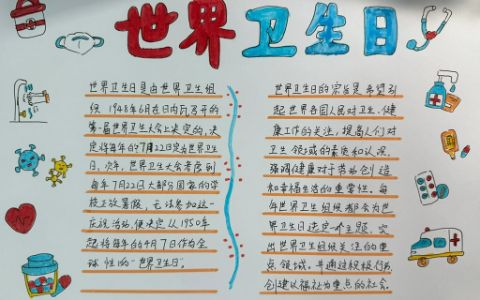 世界卫生日
世界卫生日是由世界卫生组
织1948年6月在日内瓦召开的
第一届世界卫生大会上决定的，决
定将每年的7月22日定为世界卫生
日，次年，世界卫生大会考虑到
每年7月22日大部分国家的学
校正放暑假，无法参加这一
庆祝活动，便决定从1950年
起将每年的4月7日作为全
球性的“世界卫生日”。
世界卫生日的宗旨是希望引
起世界各国人民对卫生、健
康工作的关注，提高人们对
卫生领域的素质和认识，
强调健康对于劳动创造
和幸福生活的重要性。每
年世界卫生组织都会为世
界卫生日选定一主题，突
出世界卫生组织关注的重
点领域，并通过积极行为，
创建以福祉为重点的社会。